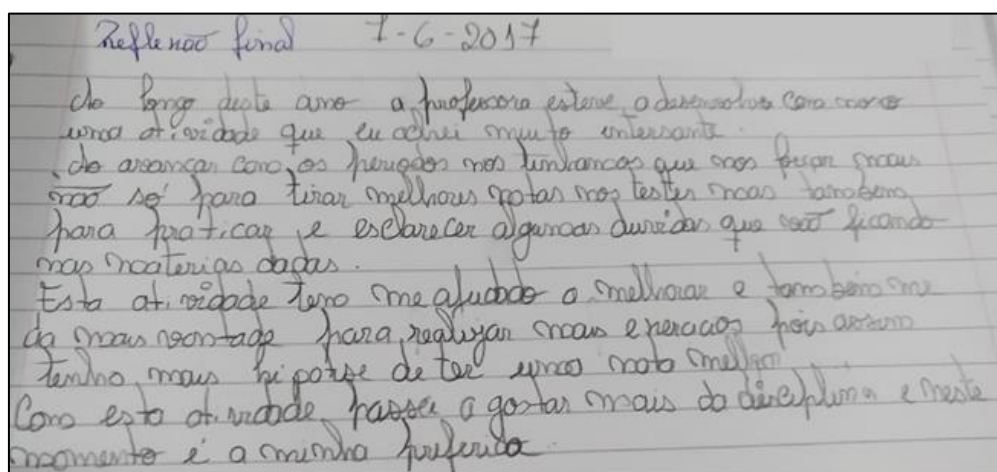 Reflexão final 7-6-2017
Ao longo deste ano a professora esteve a desenvolver com nosco
uma atividade que eu achei muito intersante.
Ao avançar com os periodos nos tinhamos que nos focar mais
não só para tirar melhores notas nos testes mas tambem
para praticar e esclarecer algumas duvidas que vão ficando
nas materias dadas.
Esta atividade tem me ajudado a melhorar e tambem me
da mais vontade para realizar mais exercicios pois assim
tenho mais hipotse de ter uma nota melhor
Com esta atividade passei a gostar mais da disciplina e neste
momento é a minha preferida.